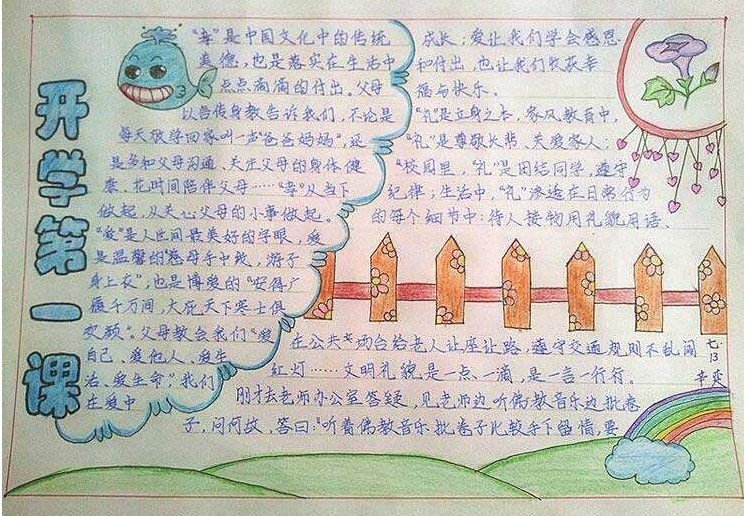 开学第一课
“孝”是中国文化中的传统
美德，也是落实在生活中
点点滴滴的付出。父母
以言传身教告诉我们，不论是
每天放学回家叫一声“爸爸妈妈”，还
是多和父母沟通、关注父母的身体健
康、花时间陪伴父母……“孝”从当下
做起，从关心父母的小事做起。
“爱”是人世间最美好的字眼，爱
是温馨的“慈母手中线，游子
身上衣”；也是博爱的“安得广
厦千万间，大庇天下寒士俱
欢颜”。父母教会我们“爱
自己、爱他人、爱生
活、爱生命”，我们
在爱中
成长；爱让我们学会感恩
和付出，也让我们收获幸
福与快乐。
“礼”是立身之本，家风教育中，
“礼”是尊敬长辈、关爱家人；
“校园里，“礼”是团结同学，遵守
纪律；生活中，“礼”渗透在日常行为
的每个细节中：待人接物用礼貌用语、
在公共场合给老人让座让路，遵守交通规则不乱闯
红灯……文明礼貌是一点一滴，是一言一行行。
刚才去老师办公室答疑，见老师边听佛教音乐边批卷
子，问何故，答曰：“听着佛教音乐批卷子比较手下留情，要
七·13